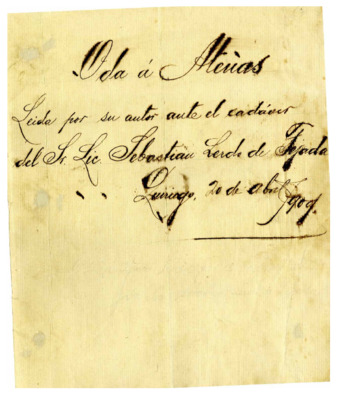 Oda á Atenas
Leida por su autor ante el cadáver
del Sr. Lic. Sebastian Lerdo de Tejada
" " Quiriego, 20 de abril 1909.